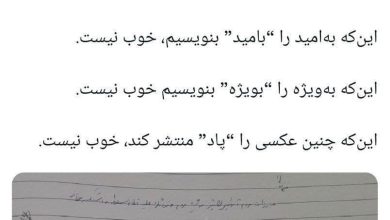 این‌که به‌امید را “بامید” بنویسیم، خوب نیست.
این‌که به‌ویژه را “بویژه” بنویسیم خوب نیست.
این‌که چنین عکسی را “پاد” منتشر کند، خوب نیست.